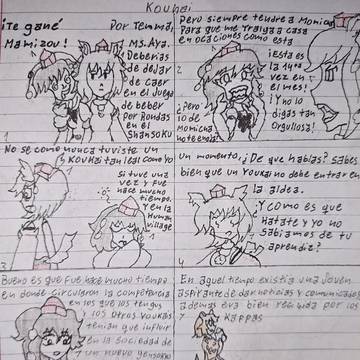 Kouhai
¡Te gané
Mamizou!
Por Temma,
Ms. Aya.
Deberías
de dejar
de caer
en el Juego
de beber
por Rondas
en el
Shansoku
1
Pero siempre tendre a Momiji
Para que me Traiga a casa
en ocaciones como esta
¡Esta es
la 14va
vez en
el mes!
¡Y no lo
digas tan
Orgullosa!
¿Pero
no te
2
No se como nunca tuviste un
Kouhai tan leal como yo
Si tuve una
vez y fue
hace mucho
tiempo.
Y en la
Human
village
3
un momento, ¿De que hablas? sabes
bien que un Youkai no debe entrar en
la aldea.
Y COMO es que
Hatate y yo no
Sabiamos de tu
aprendiz?
4
Bueno es que fue hace mucho tiempo
en donde circularon la competencia
en los que los tengus
y los otros Youkais
tenían que influir
en la sociedad de
un nuevo gensokyo
En aquel tiempo existía una Joven
aspirante de dar noticias y comunicados
además era bien recibida por los
Kappas